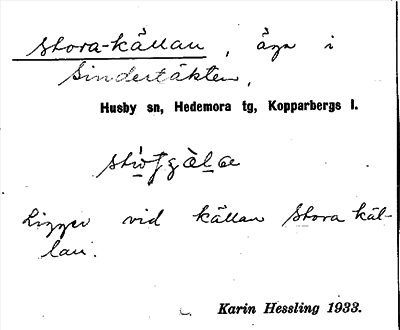 Stora-källan, äga i
Sindertäkten,
Husby sn, Hedemora tg, Kopparbergs l.
Ligger vid källan Stora käl-
lan.
Karin Hessling 1933.